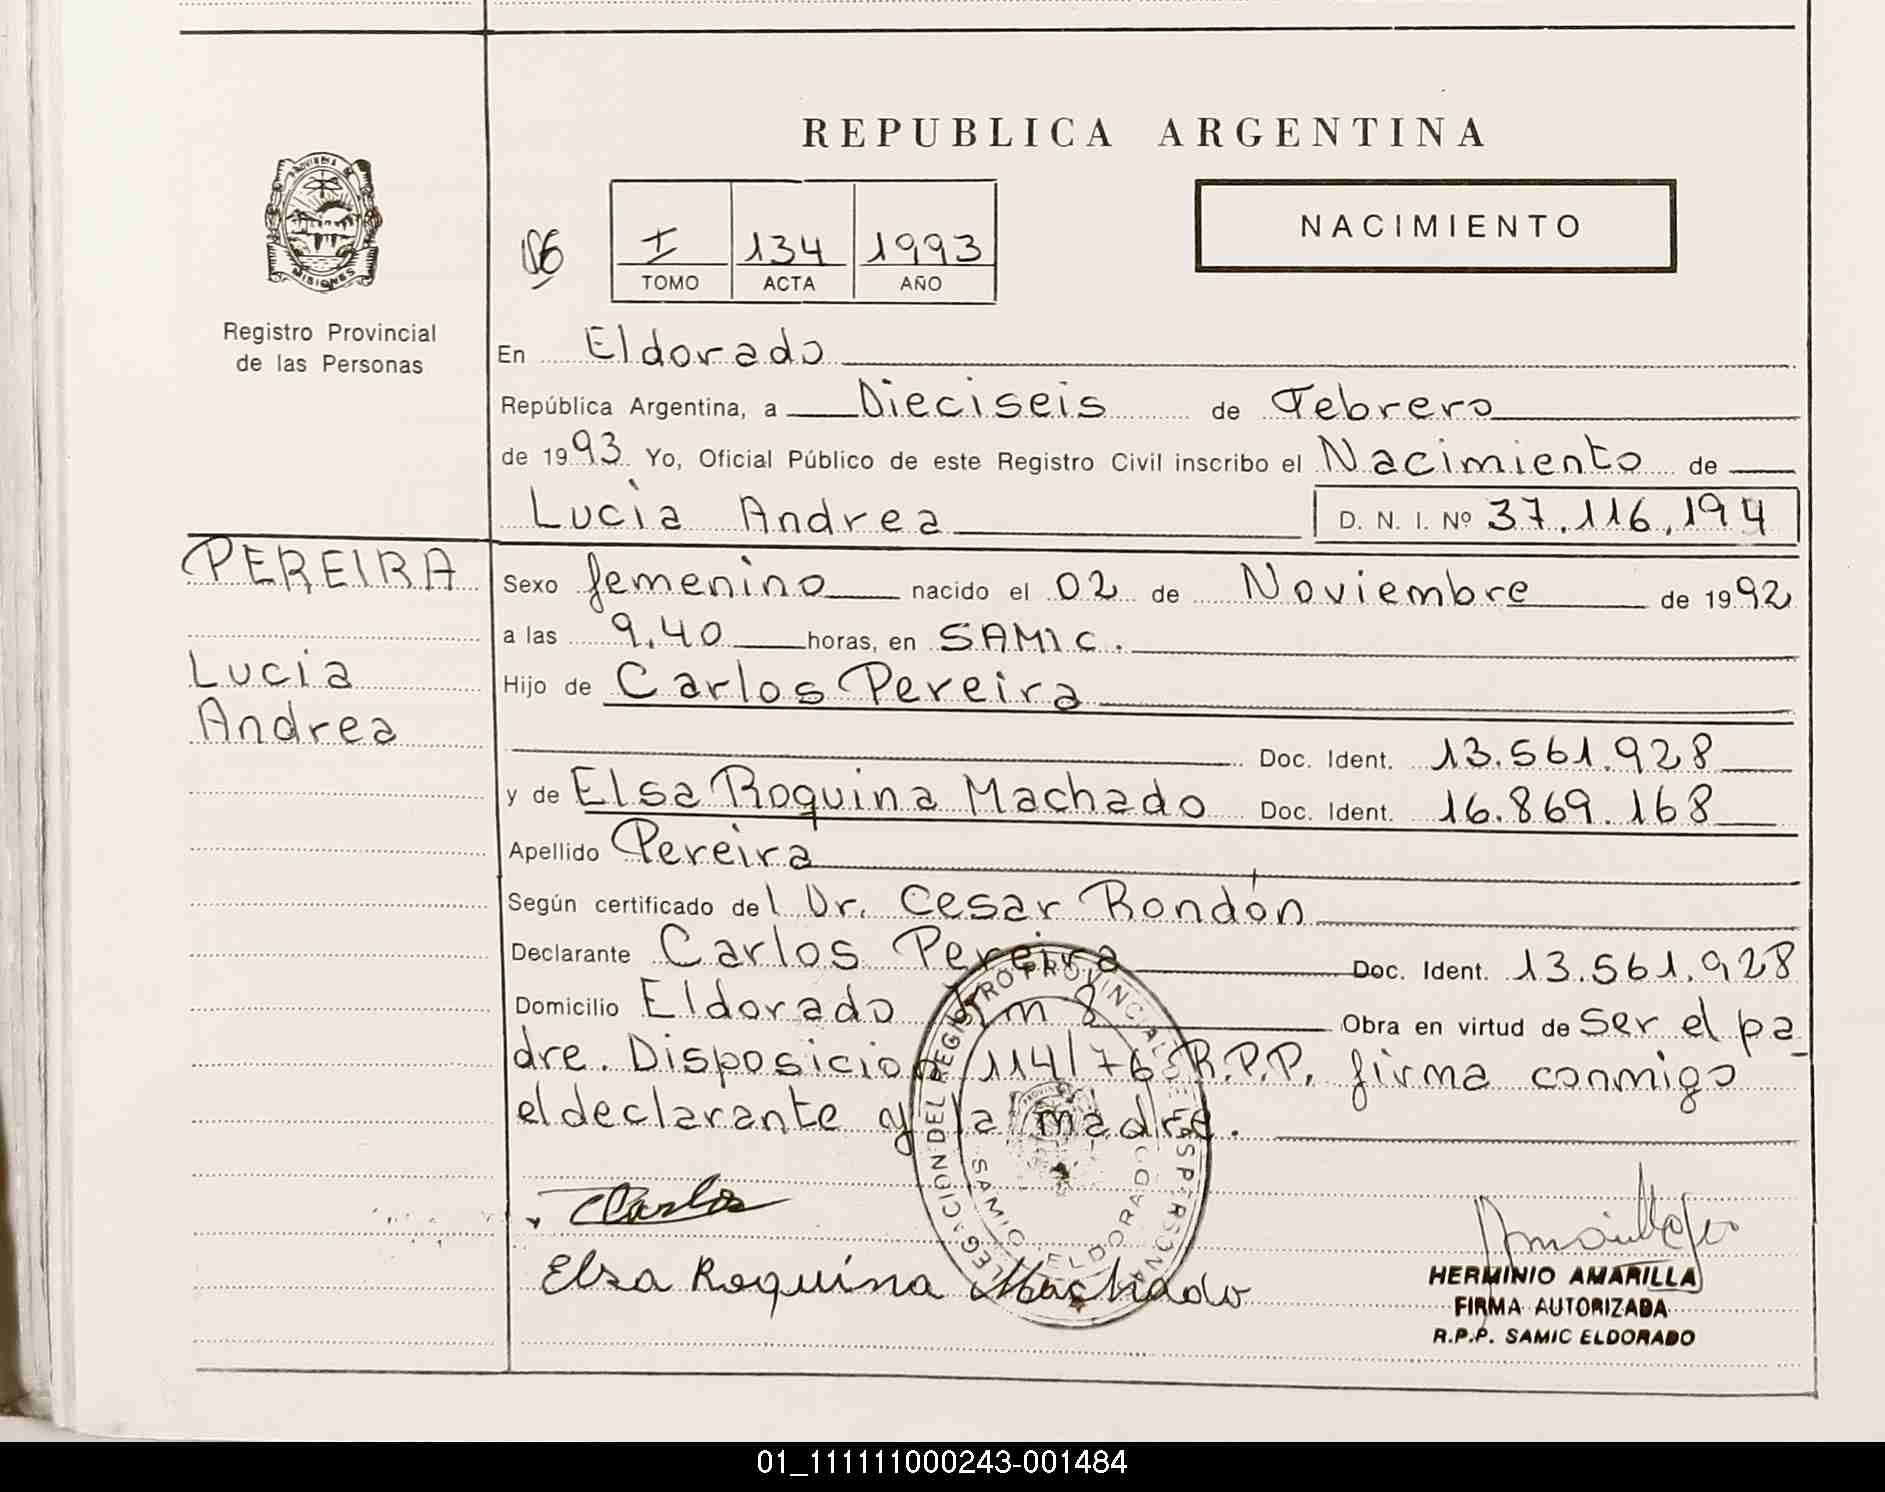 REPUBLICA ARGENTINA
NACIMIENTO
PROVINCIA DE
MISIONES
Registro Provincial
de las Personas
106
I 134 1993
TOMO ACTA AÑO
En Eldorado
República Argentina, a Dieciseis de Febrero
de 1993 Yo, Oficial Público de este Registro Civil inscribo el Nacimiento de
Lucia Andrea D. N. I. Nº 37.116.194
PEREIRA
Lucia
Andrea
Sexo femenino nacido el 02 de Noviembre de 1992
a las 9.40 horas, en SAMIC.
Hijo de Carlos Pereira
Doc. Ident. 13.561.928
y de Elsa Roquina Machado Doc. Ident. 16.869.168
Apellido Pereira
Según certificado del Dr. Cesar Rondón
Declarante Carlos Pereira Doc. Ident. 13.561.928
Domicilio Eldorado km 8 Obra en virtud de ser el pa
dre. Disposicion 114/76 R.P.P. firma conmigo
el declarante y la madre.
DELEGACION DEL REGISTRO PROVINCIAL DE LAS PERSONAS
SAMIC ELDORADO
Carlos
Elsa Roquina Machado
HERMINIO AMARILLA
FIRMA AUTORIZADA
R.P.P. SAMIC ELDORADO
01_111111000243-001484